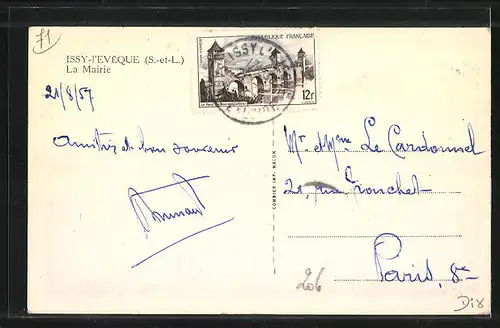 71
ISSY-l'EVÊQUE (S.-et-L.)
La Mairie
21/8/57
RÉPUBLIQUE FRANÇAISE
12F
ISSY L'
Amitiés et bon souvenir
COMBIER IMP. MACON
Mr et Mme Le Cardonnel
21, rue Tronchet
Paris, 8e
206
Dix